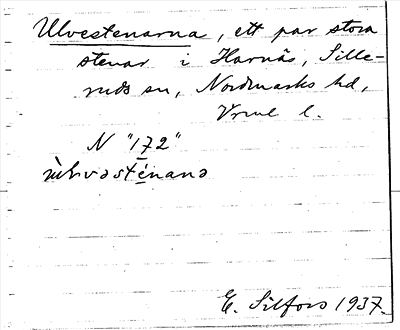 Ulvestenarna, ett par stora
stenar i Harnäs, Sille-
ruds sn, Nordmarks hd,
Vrml l.
N "172"
E. Silfors 1937.